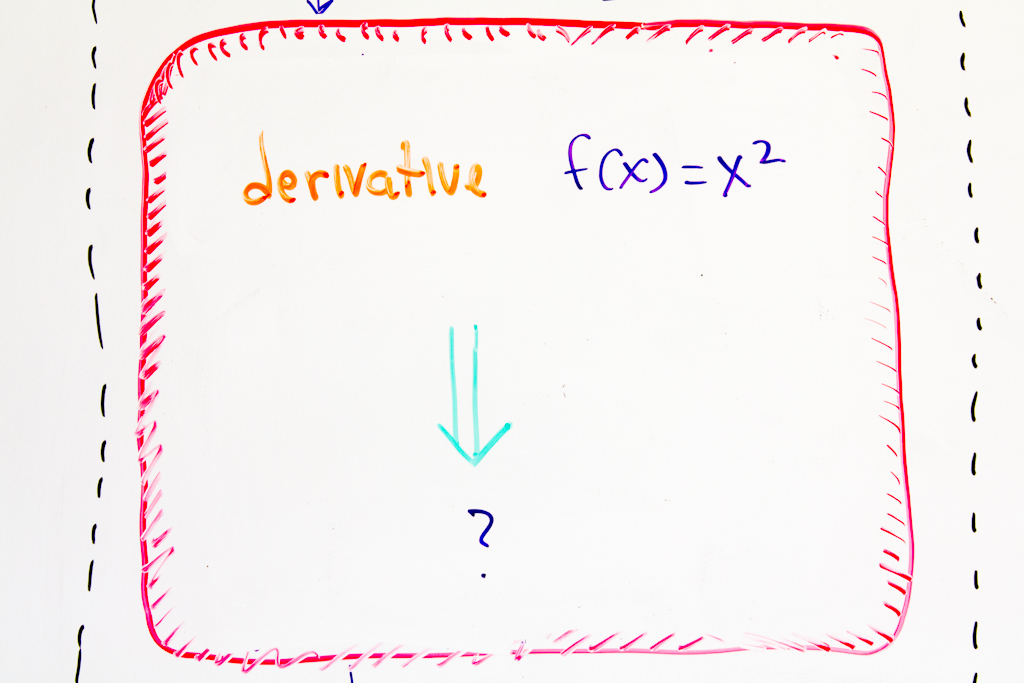 derivative f(x) = x²
?